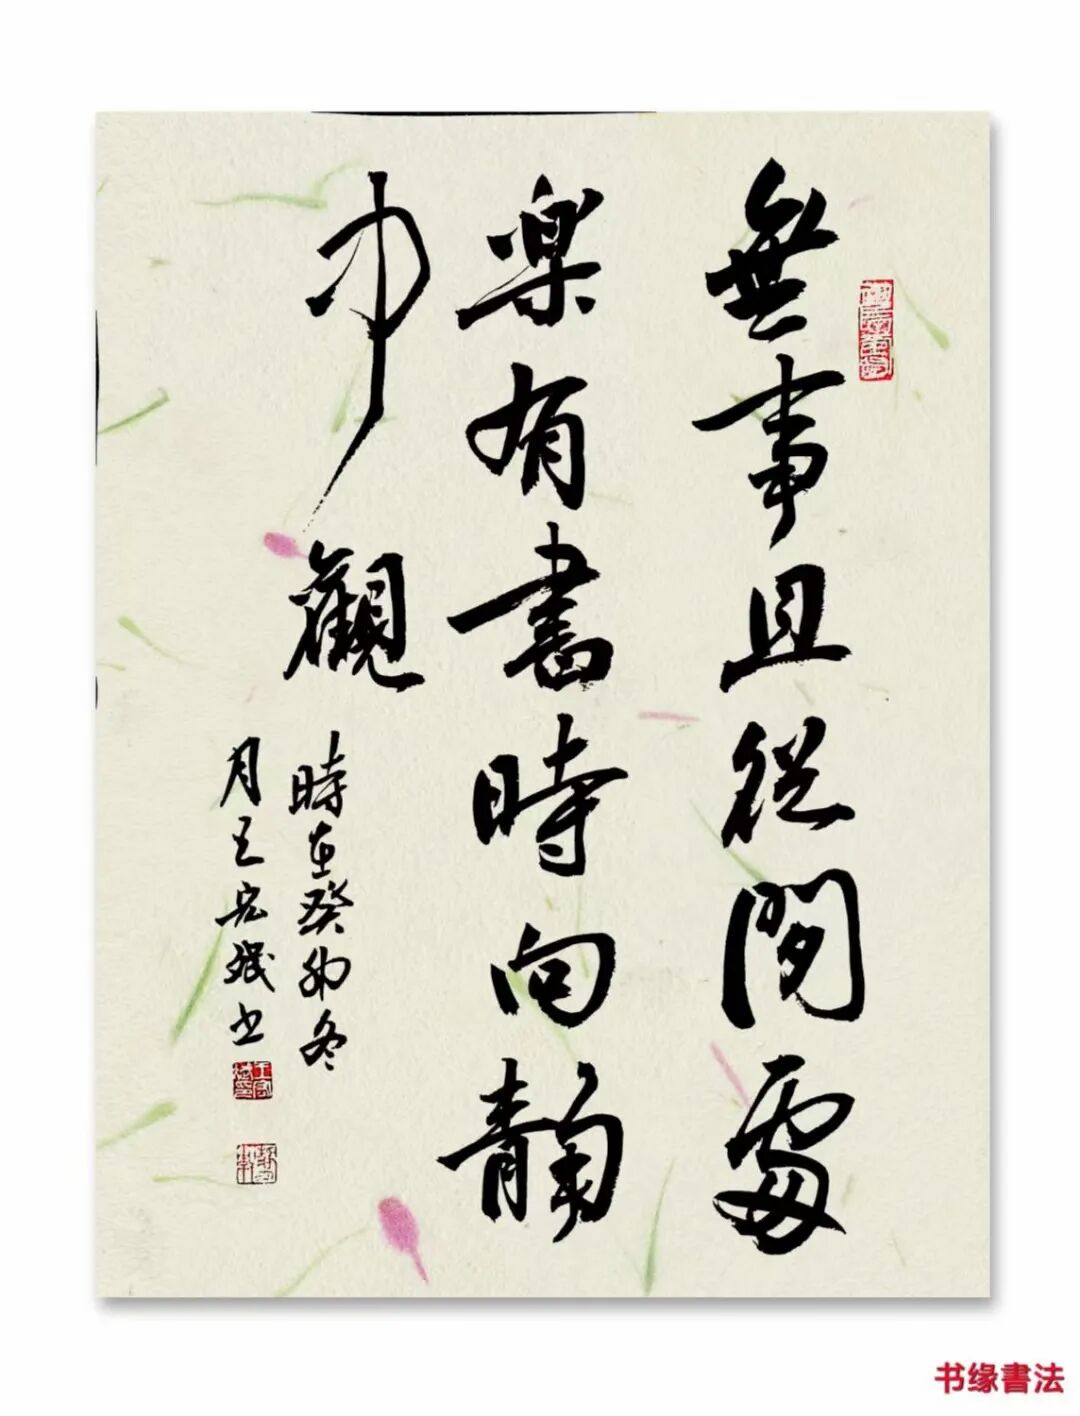 無事且從閒處
樂有書時向靜
中觀
時在癸卯冬
月王宏珉书
书缘書法